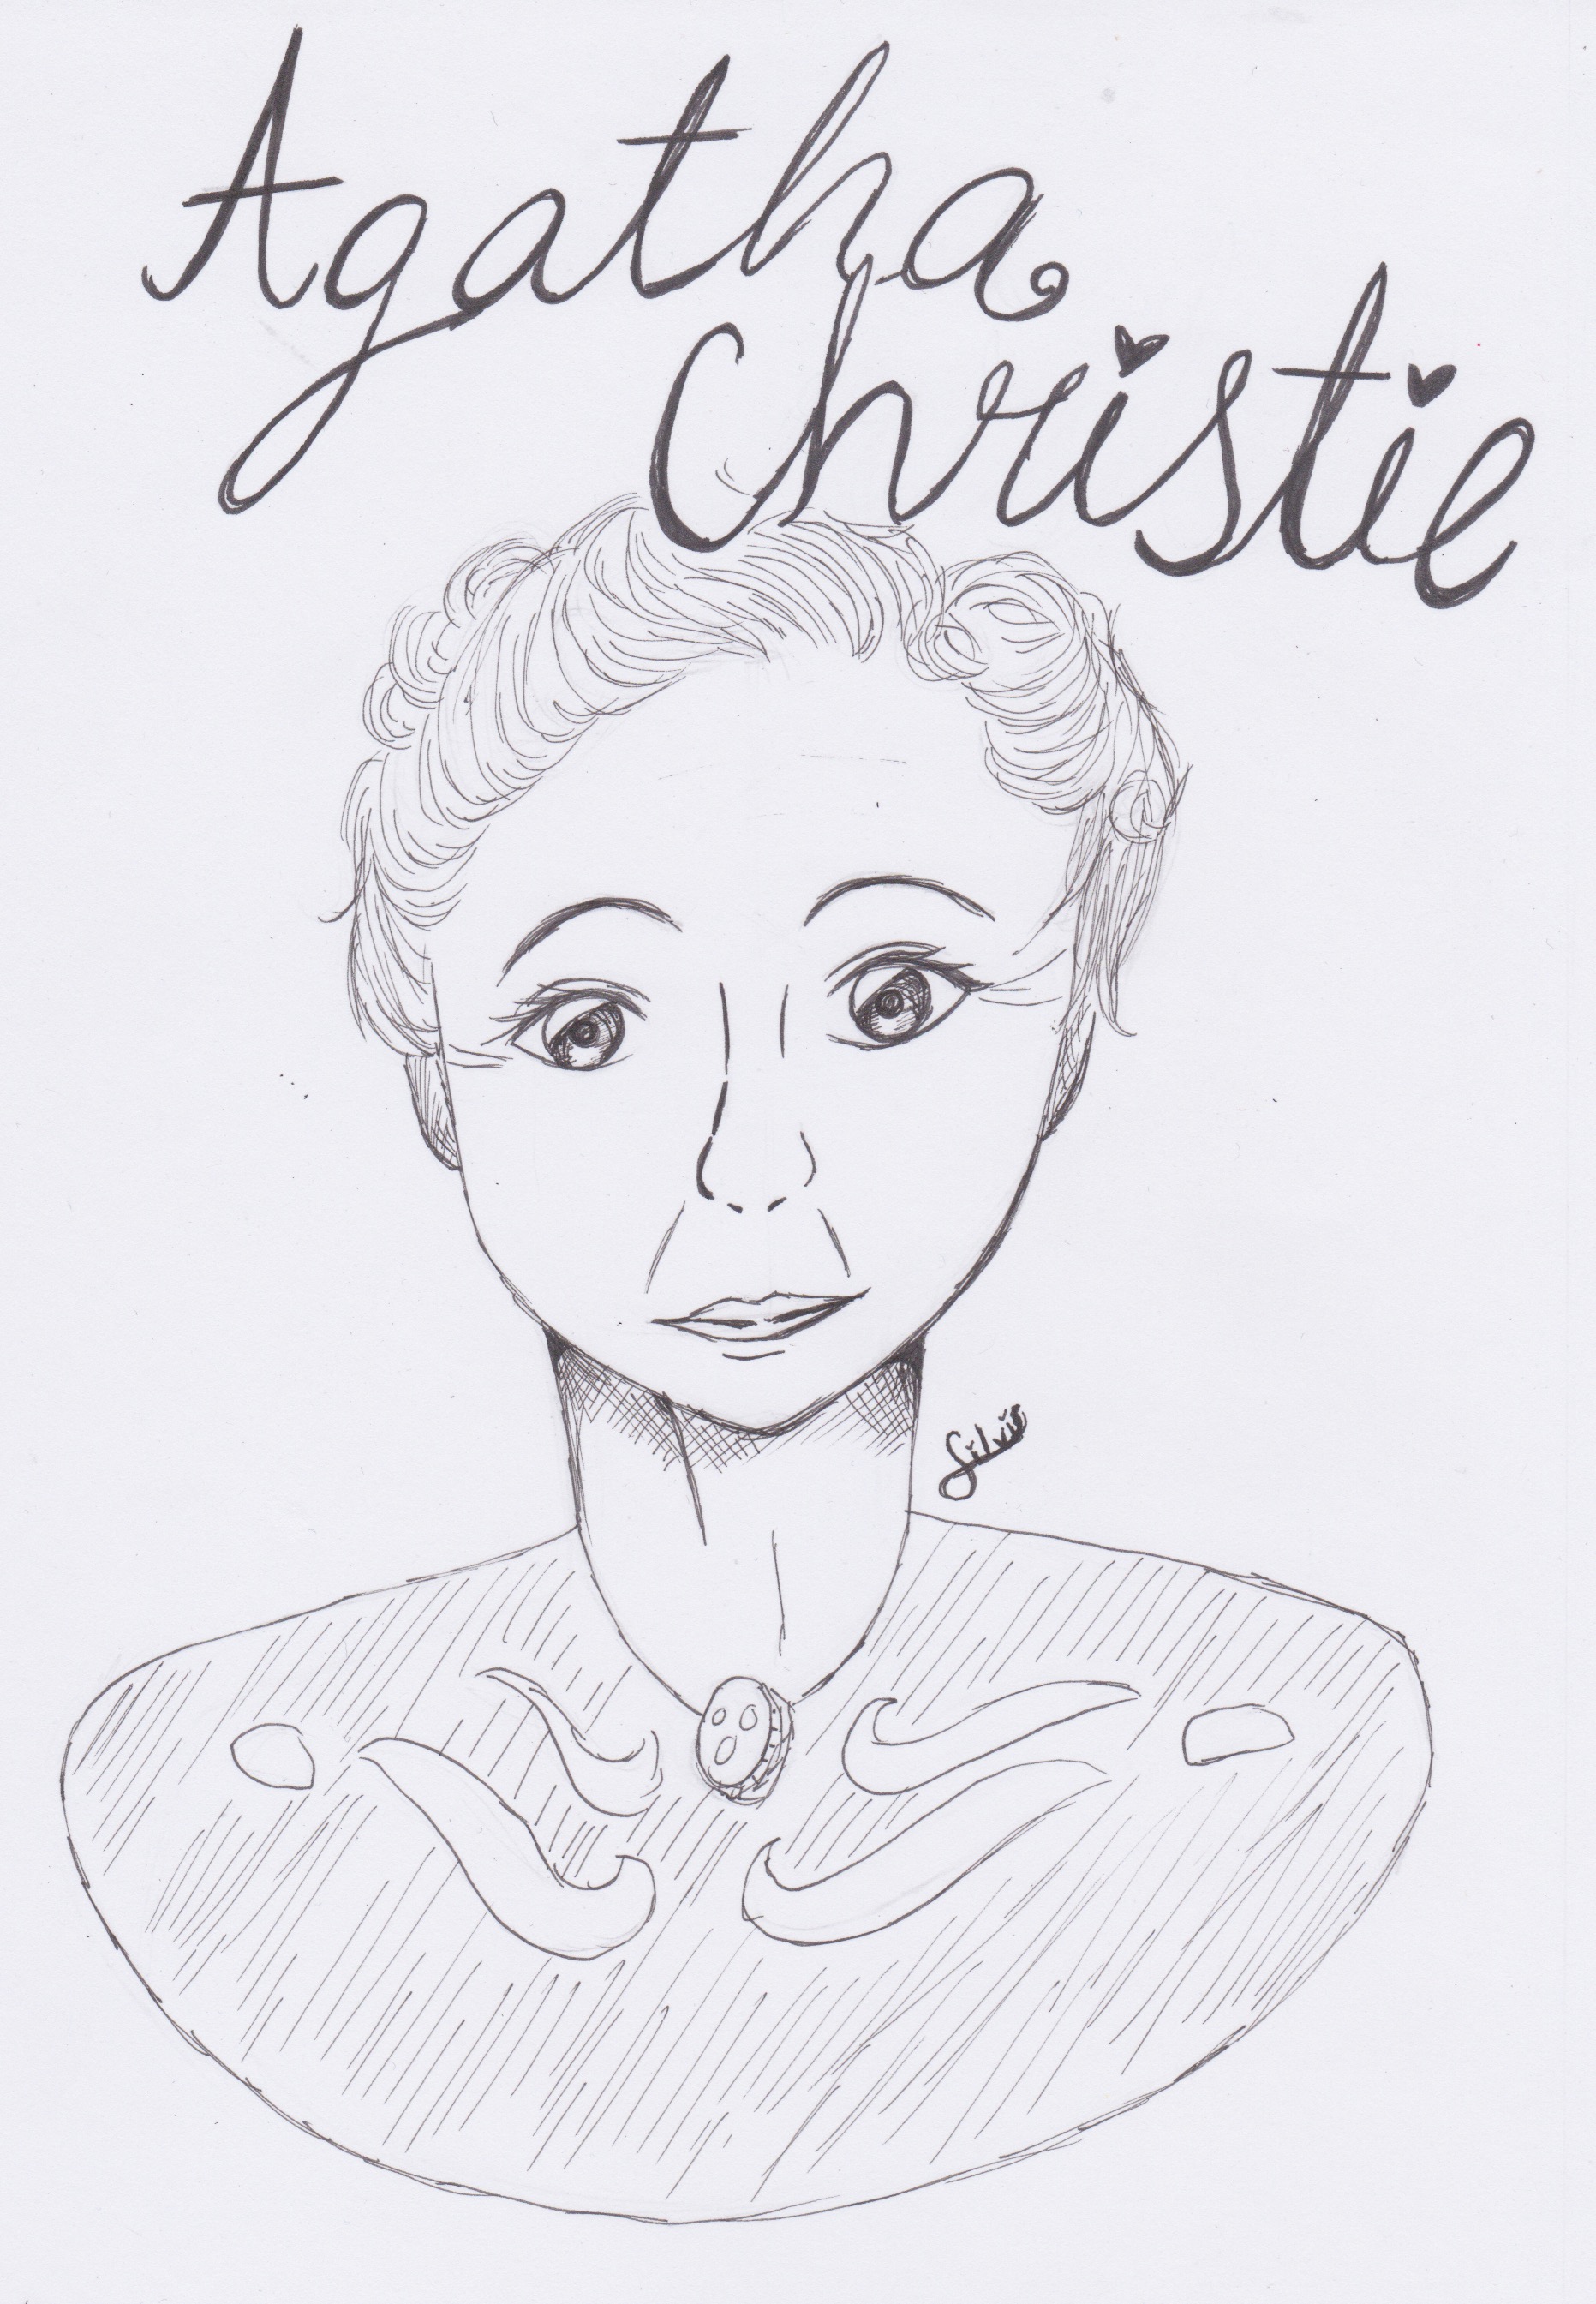 Agatha
Christie
Silvis